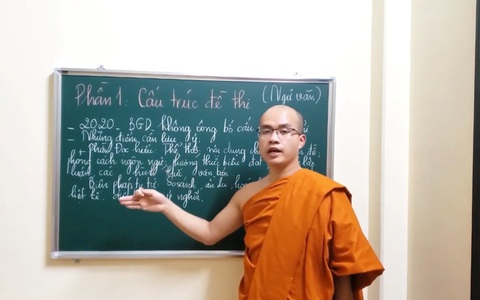 Phần 1: Cấu trúc đề thi (Ngữ văn)
- 2020. BGD không công bố cấu
- Những điểm cần lưu ý
+ Phần Đọc hiểu: thể thơ, nội dung
phong cách ngôn ngữ, phương thức biểu đạt
luận, các hình thức văn bản.
+ Biện pháp tu từ: So sánh, ẩn dụ,
liệt kê. nghĩa.